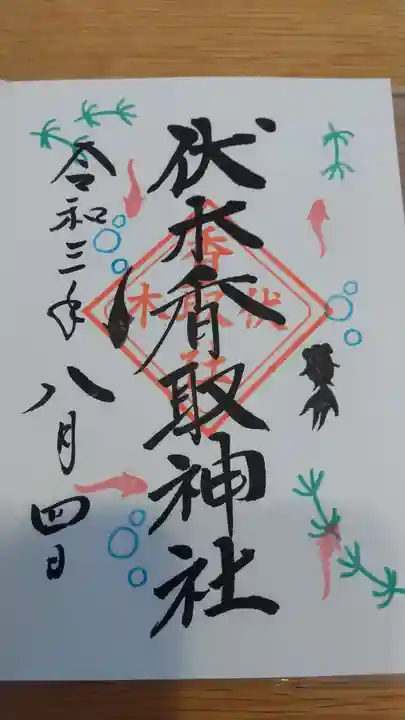 伏木香取神社
令和三年
八月四日
伏木
香取